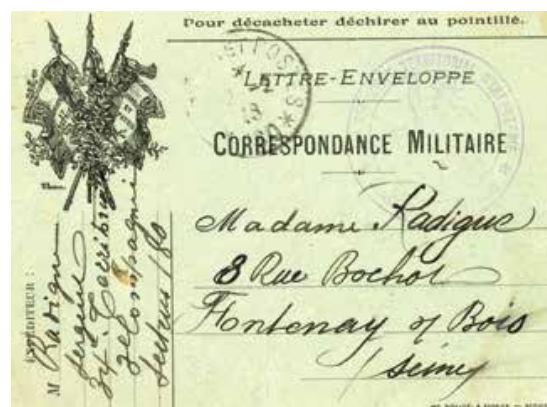 Pour décacheter déchirer au pointillé.
LETTRE-ENVELOPPE
CORRESPONDANCE MILITAIRE
Madame Radigue
8 Rue Bochot
Fontenay s/ Bois
(Seine)
EXPÉDITEUR :
M Radigue
Sergent
34e Territorial
2e Compagnie
Secteur 180